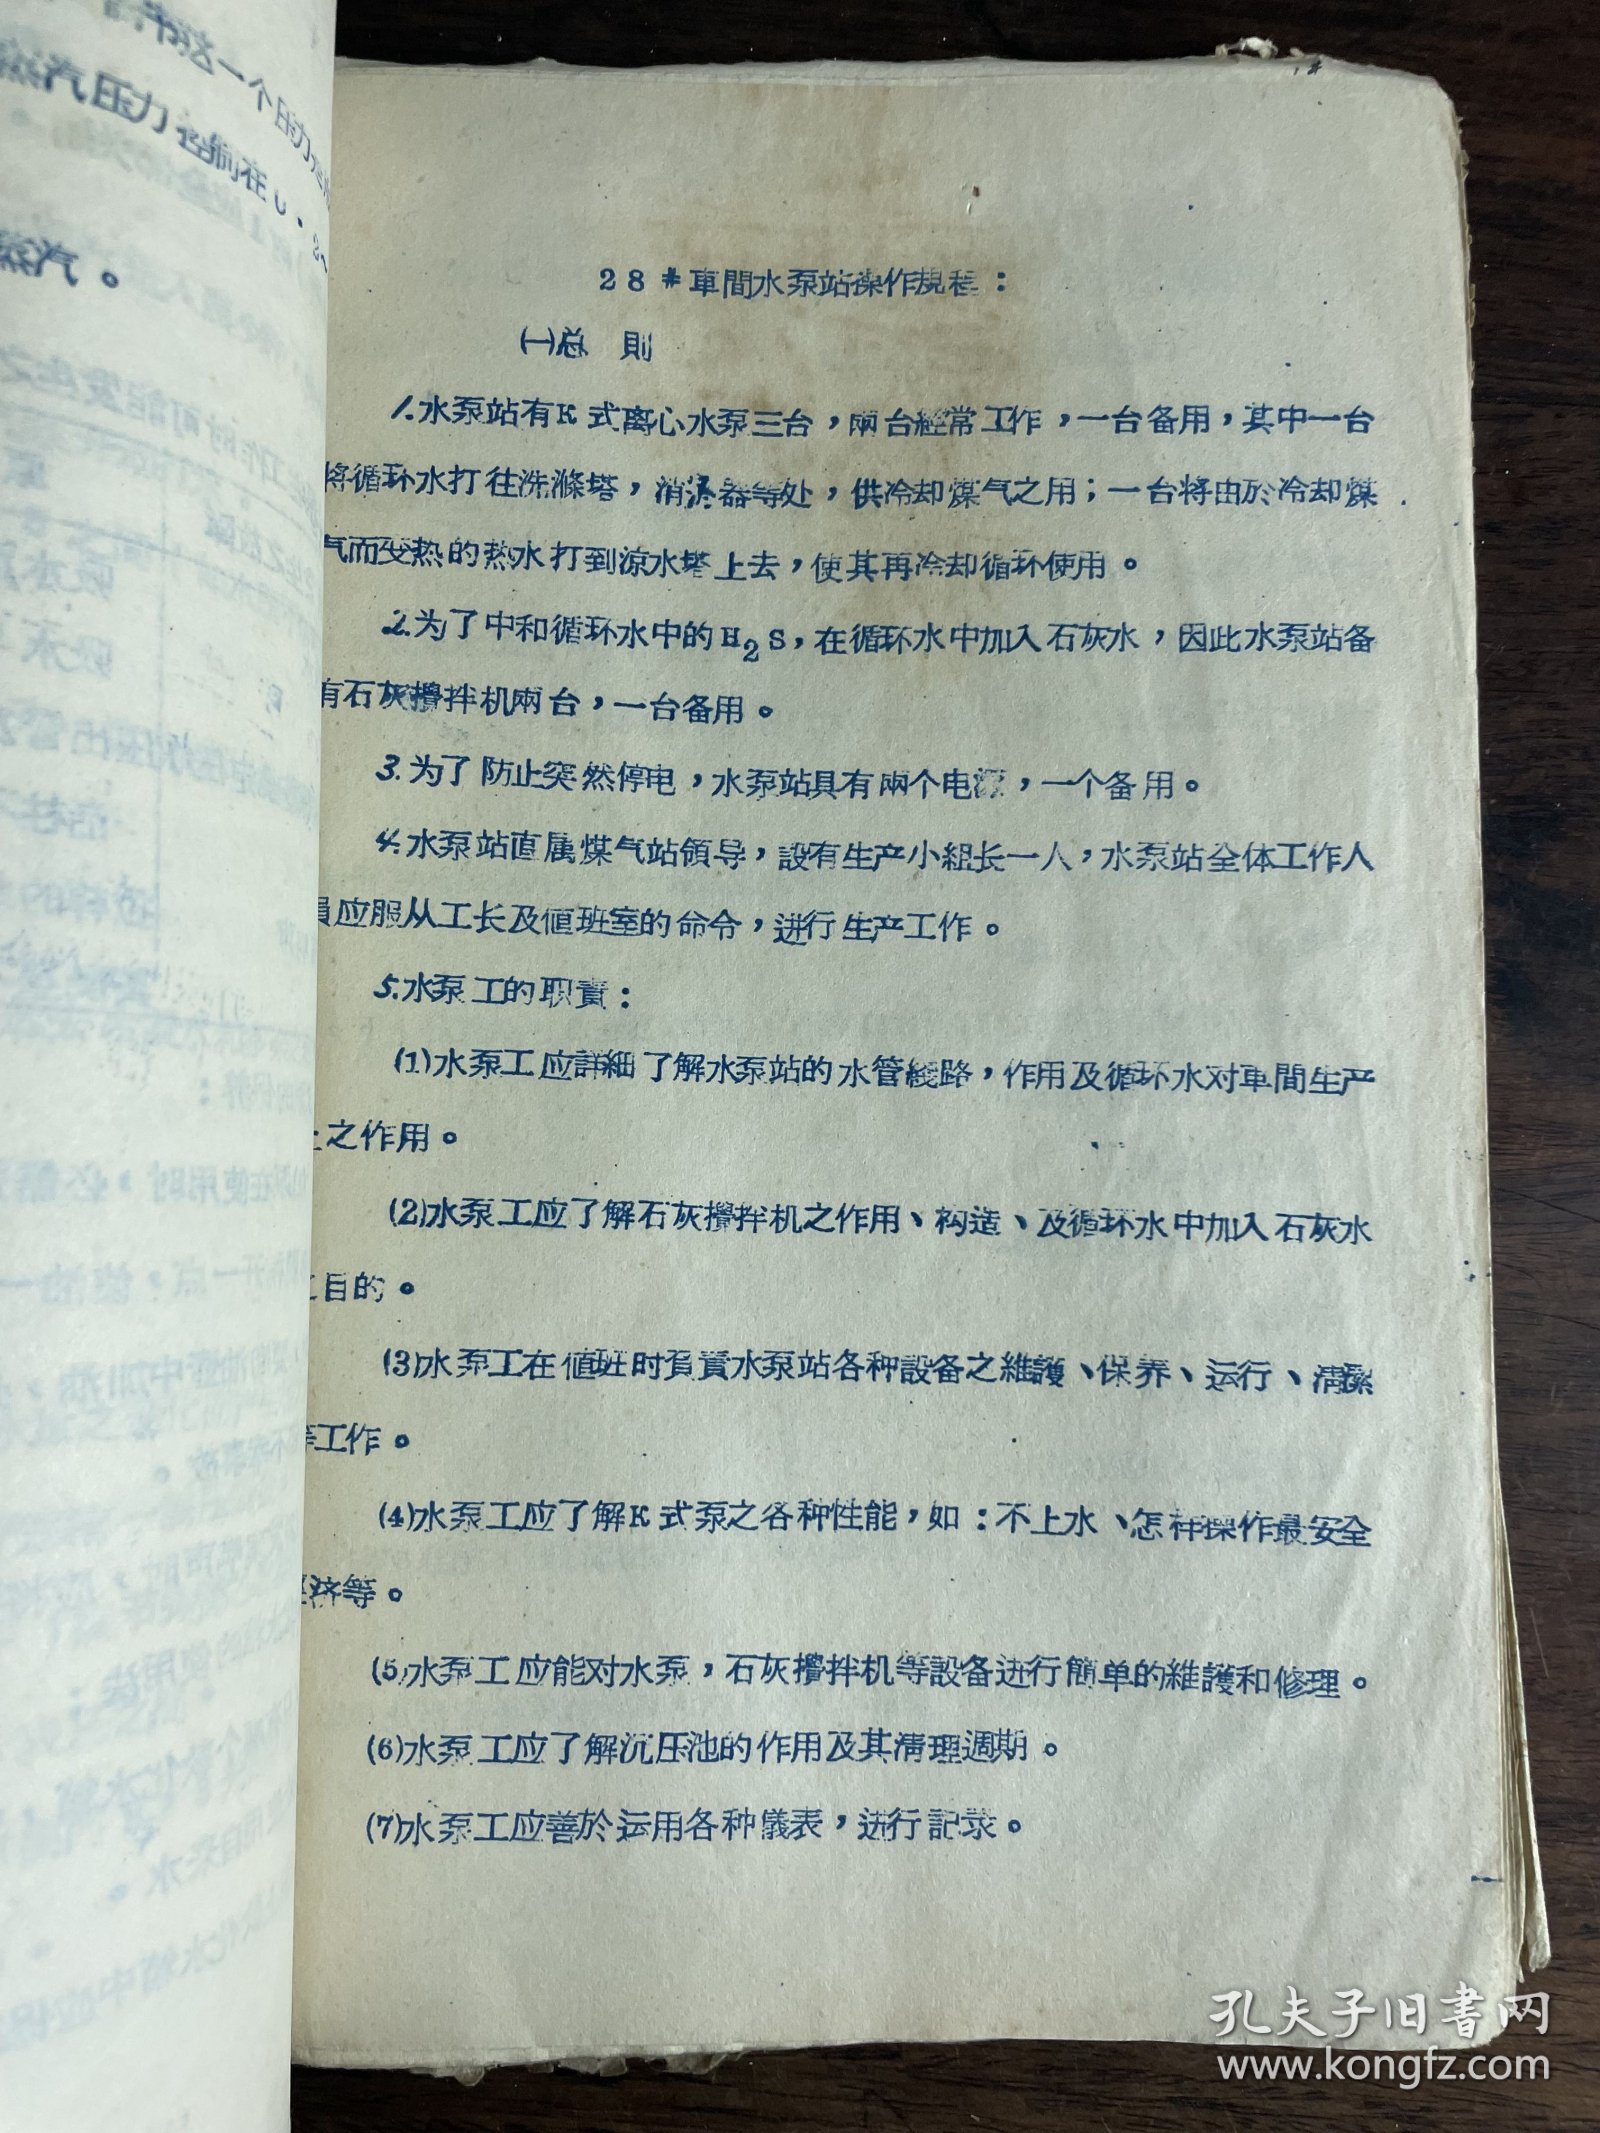 书这一个压力
蒸汽压力控制在0.
蒸汽。
28#車間水泵站操作規程：
(一)总 則
1.水泵站有K式离心水泵三台，兩台經常工作，一台备用，其中一台
将循环水打往洗滌塔，消滴器等处，供冷却煤气之用；一台将由於冷却煤
气而变热的热水打到凉水塔上去，使其再冷却循环使用。
2.为了中和循环水中的H2S，在循环水中加入石灰水，因此水泵站备
有石灰攪拌机兩台，一台备用。
3.为了防止突然停电，水泵站具有兩个电源，一个备用。
4.水泵站直属煤气站領导，設有生产小組长一人，水泵站全体工作人
員应服从工长及值班室的命令，进行生产工作。
5.水泵工的职責：
(1)水泵工应詳細了解水泵站的水管綫路，作用及循环水对車間生产
上之作用。
(2)水泵工应了解石灰攪拌机之作用、构造、及循环水中加入石灰水
之目的。
(3)水泵工在值班时負責水泵站各种設备之維護、保养、运行、清潔
等工作。
(4)水泵工应了解K式泵之各种性能，如：不上水、怎样操作最安全
經济等。
(5)水泵工应能对水泵，石灰攪拌机等設备进行簡单的維護和修理。
(6)水泵工应了解沉压池的作用及其清理週期。
(7)水泵工应善於运用各种儀表，进行記录。
孔夫子旧書网
www.kongfz.com